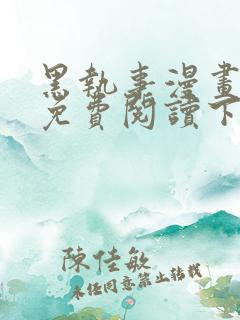 黑執事漫畫
免費閱讀下
陳佳敏
未經同意禁止轉載